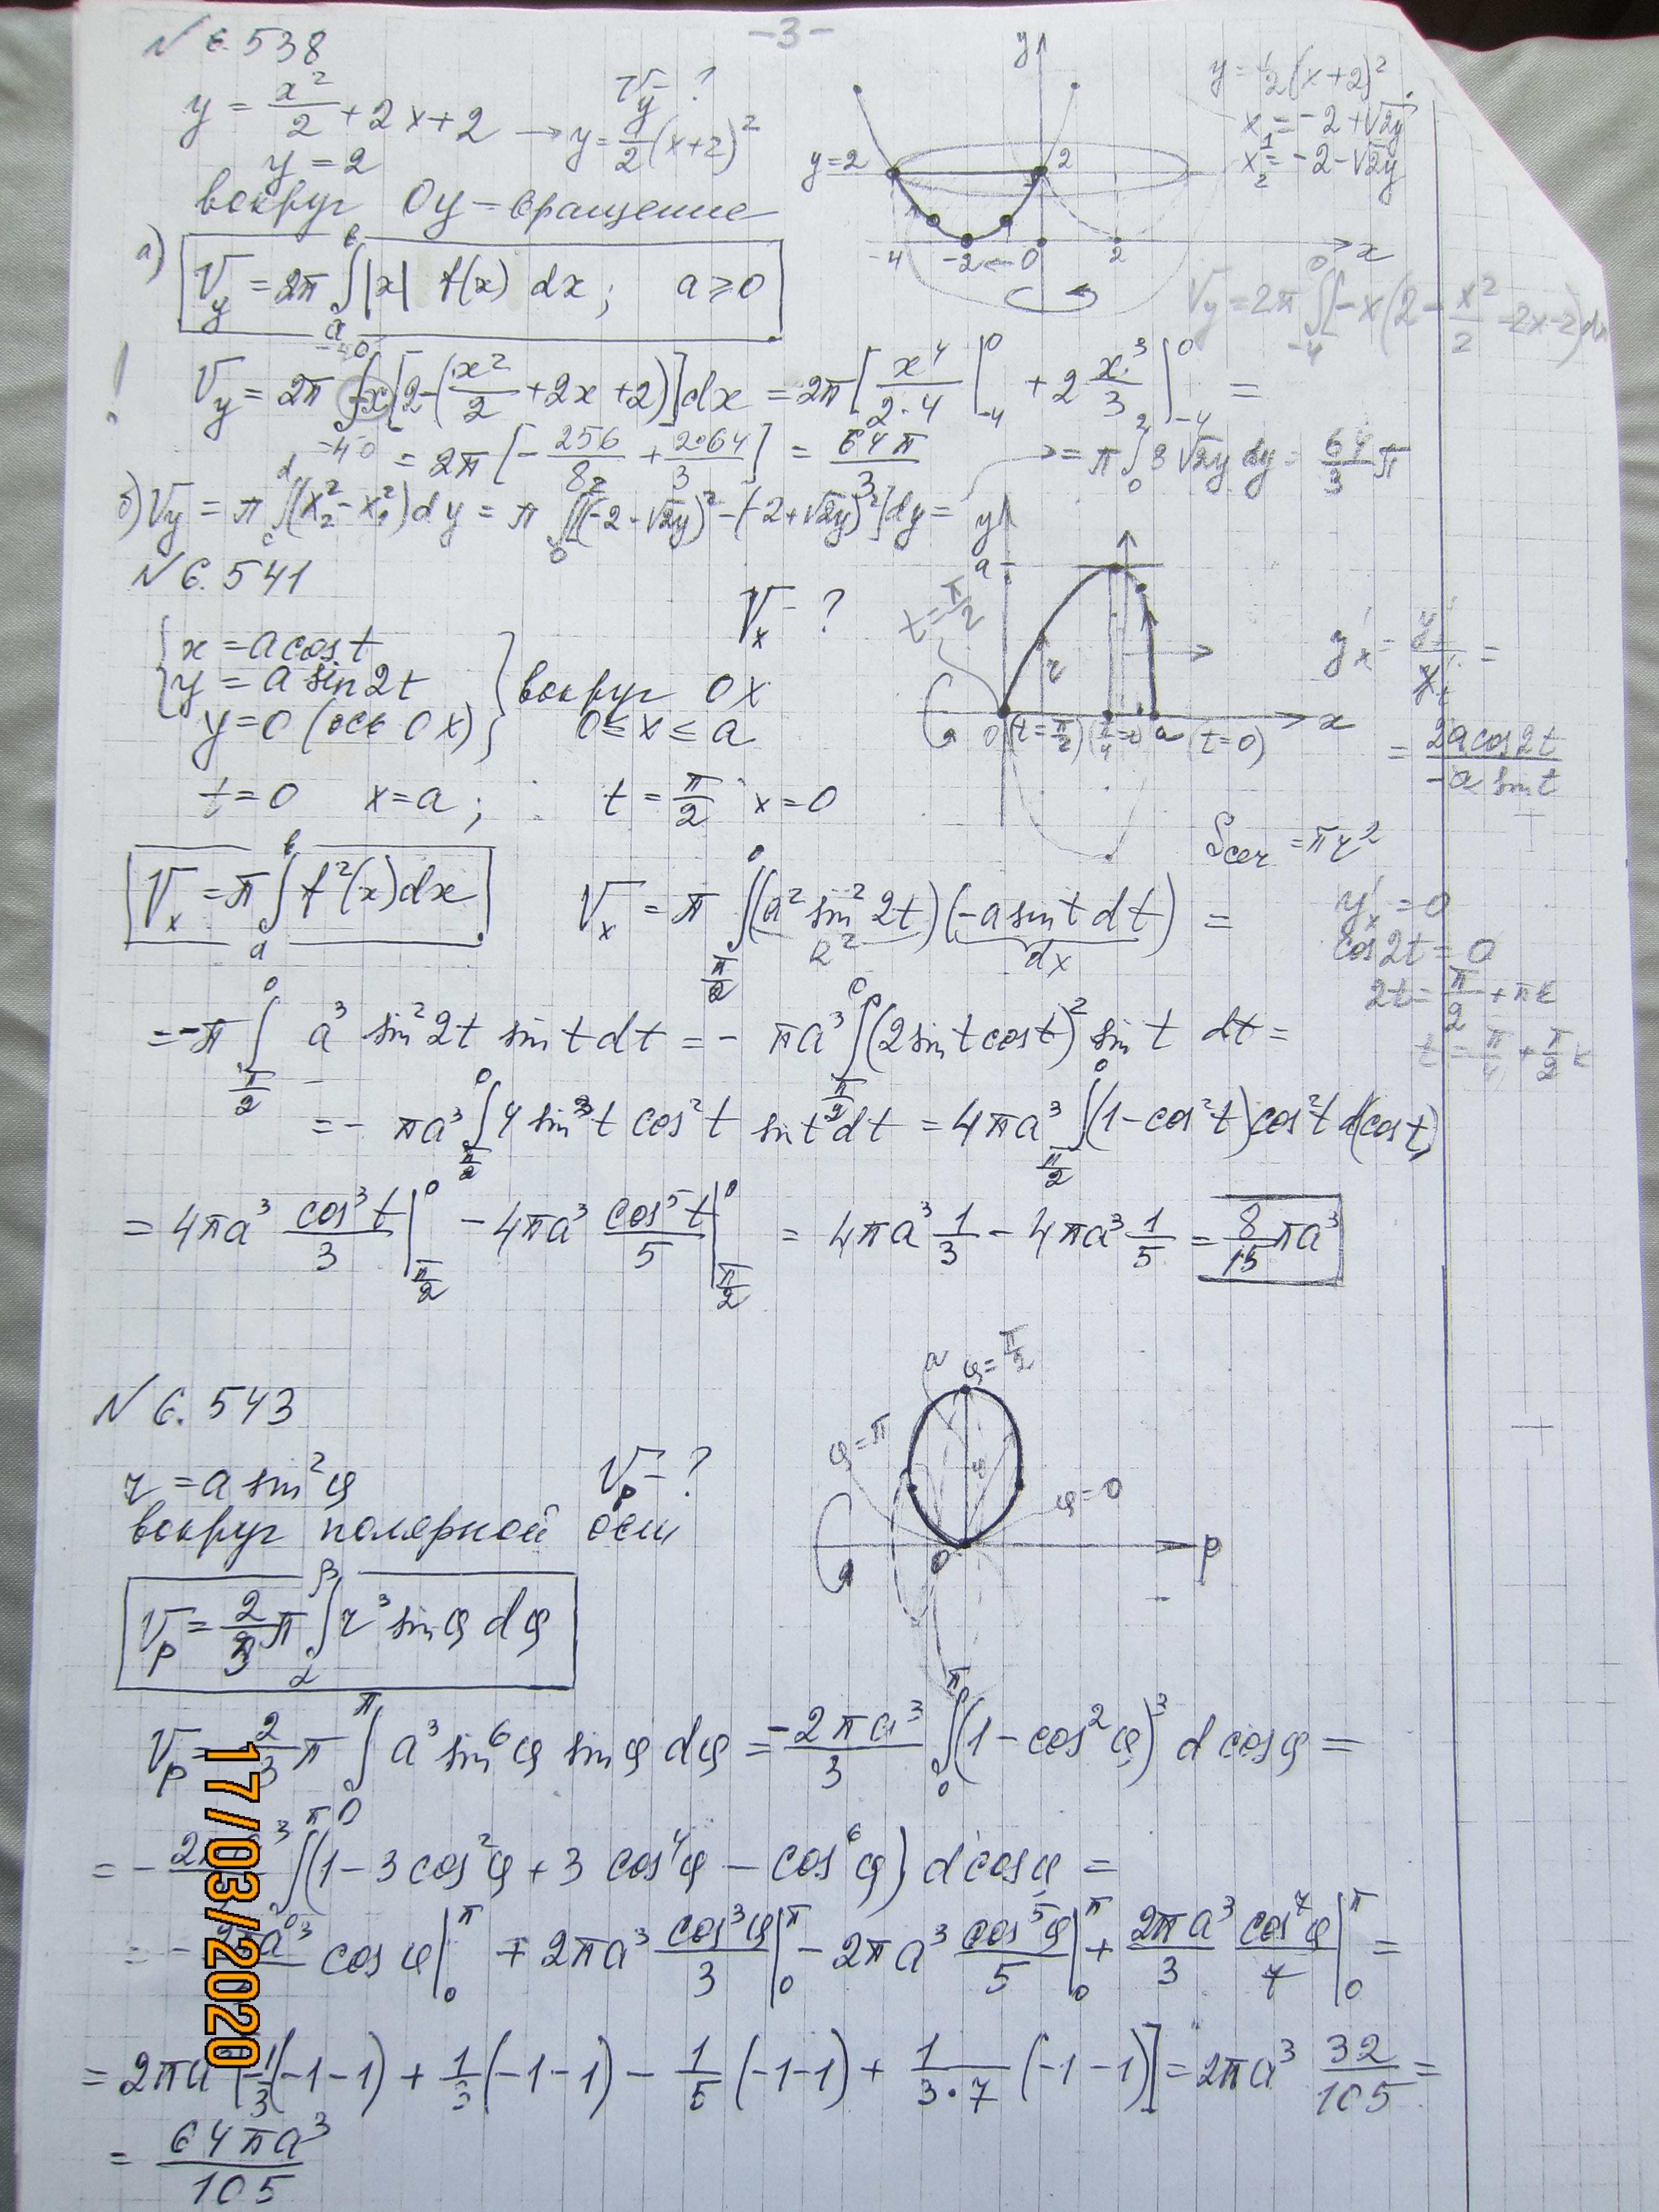 -3-
N 6.538
y = x²/2 + 2x + 2 → y = 1/2 (x+2)²
V_y = ?
y = 2
вокруг Oy - вращение
y
y=2
2
-4 -2 ← 0 2 x
y = 1/2 (x+2)²
x₁ = -2 + √2y
x₂ = -2 - √2y
V_y = 2π ∫₋₄⁰ [-x(2 - x²/2 - 2x - 2)dx
а) V_y = 2π ∫ₐᵇ |x| f(x) dx ; a ≥ 0
! V_y = 2π ∫₋₄⁰ -x[2 - (x²/2 + 2x + 2)]dx = 2π [x⁴/(2·4) |₋₄⁰ + 2 x³/3 |₋₄⁰ =
= 2π [- 256/8 + 2·64/3] = 64π/3
б) V_y = π ∫_c^d (x₂² - x₁²)dy = π ∫₀² [(-2 - √2y)² - (-2 + √2y)²]dy =
→ = π ∫₀² 8 √2y dy = 64/3 π
N 6.541
V_x = ?
{ x = a cos t
y = a sin 2t
y = 0 (ось Ox) } вокруг Ox
0 ≤ x ≤ a
t = 0 x = a ; t = π/2 x = 0
y
a
t = π/2
r
0 (t = π/2) (π/4 = t) a (t = 0) x
y'ₓ = y'ₜ/x'ₜ =
= 2a cos 2t / -a sin t
S сеч = πr²
y'ₓ = 0
cos 2t = 0
2t = π/2 + πk
t = π/4 + π/2 k
V_x = π ∫ₐᵇ f²(x)dx
V_x = π ∫_{π/2}^0 (a² sin² 2t)(-a sin t dt) =
R² dx
= -π ∫_{π/2}^0 a³ sin² 2t sin t dt = - πa³ ∫_{π/2}^0 (2 sin t cos t)² sin t dt =
= - πa³ ∫_{π/2}^0 4 sin² t cos² t sin t dt = 4πa³ ∫_{π/2}^0 (1 - cos² t) cos² t d(cos t)
= 4πa³ cos³ t/3 |_{π/2}^0 - 4πa³ cos⁵ t/5 |_{π/2}^0 = 4πa³ 1/3 - 4πa³ 1/5 = 8/15 πa³
N 6.543
r = a sin² φ
V_p = ?
вокруг полярной оси
a φ = π/2
φ = π
φ = 0
0 p
V_p = 2/3 π ∫_α^β r³ sin φ dφ
V_p = 2/3 π ∫₀^π a³ sin⁶ φ sin φ dφ = -2πa³/3 ∫₀^π (1 - cos² φ)³ d cos φ =
= - ∫₀^π (1 - 3 cos² φ + 3 cos⁴ φ - cos⁶ φ) d cos φ =
= - cos φ |₀^π + 2πa³ cos³ φ/3 |₀^π - 2πa³ cos⁵ φ/5 |₀^π + 2πa³/3 cos⁷ φ/7 |₀^π =
= 2πa³ [-1/3 (-1-1) + 1/3 (-1-1) - 1/5 (-1-1) + 1/(3·7) (-1-1)] = 2πa³ 32/105 =
= 64πa³/105
17/03/2020